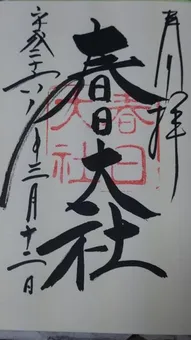 奉拝
春日大社
春日
大社
平成二十六年三月十二日